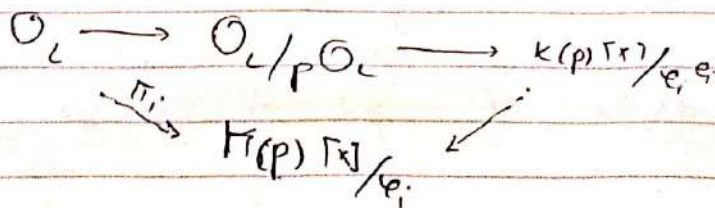 O_L → O_L/pO_L → k(p)[x]/φ_i^e_i
π_i
k(p)[x]/φ_i